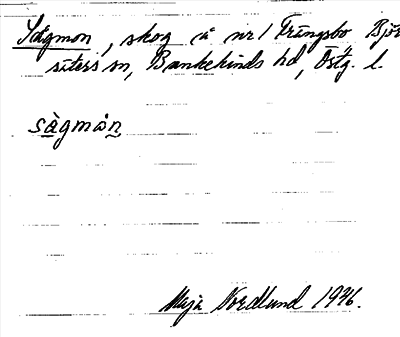 Sågmon, skog å nr 1 Frängsbo Björ
säters sn, Bankekinds hd, Östg. l.
sågmån
Maja Nordlund 1946.